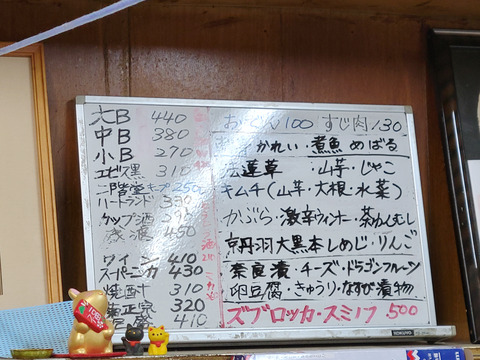 大B 440
中B 380
小B 270
エビス黒 310
二階堂キープ2500
ハートランド 330
カップ酒 290
450
ワイン 410
スーパーニッカ 430
焼酎 310
320
410
おでん100 すじ肉130
かれい・煮魚 めばる
法蓮草・山芋・じゃこ
キムチ(山芋・大根・水菜)
かぶら・激辛ウィンナー・茶わんむし
京丹羽大黒本しめじ・りんご
奈良漬・チーズ・ドラゴンフルーツ
卵豆腐・きゅうり・なすび漬物
ズブロッカ・スミノフ 500
KOKUYO